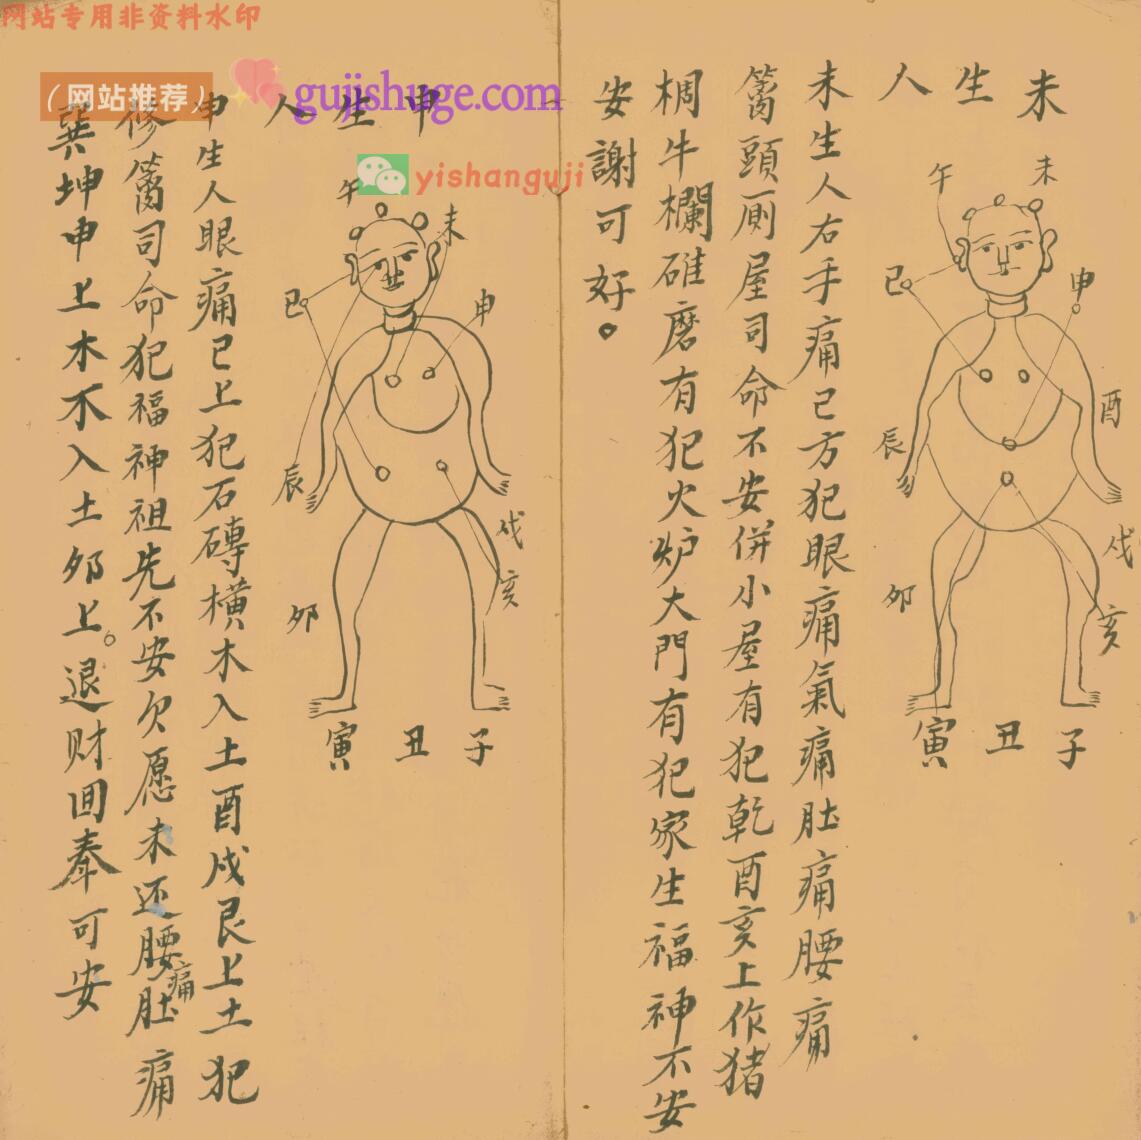 网站专用非资料水印
(网站推荐)
gujishuge.com
yishanguji
未生人
午
未
巳
申
辰
酉
卯
戌
亥
寅
丑
子
未生人右手痛己方犯眼痛氣痛肚痛腰痛
頭厠屋司命不安併小屋有犯乾酉亥上作猪
椆牛欄碓磨有犯火炉大門有犯家生福神不安
安謝可好。
申生人
午
未
巳
申
辰
戌
亥
卯
寅
丑
子
申生人眼痛已上犯石磚橫木入土酉戌艮上土犯
修司命犯福神祖先不安欠愿未还腰肚痛痛
巽坤申上木不入土卯上。退财囬奉可安